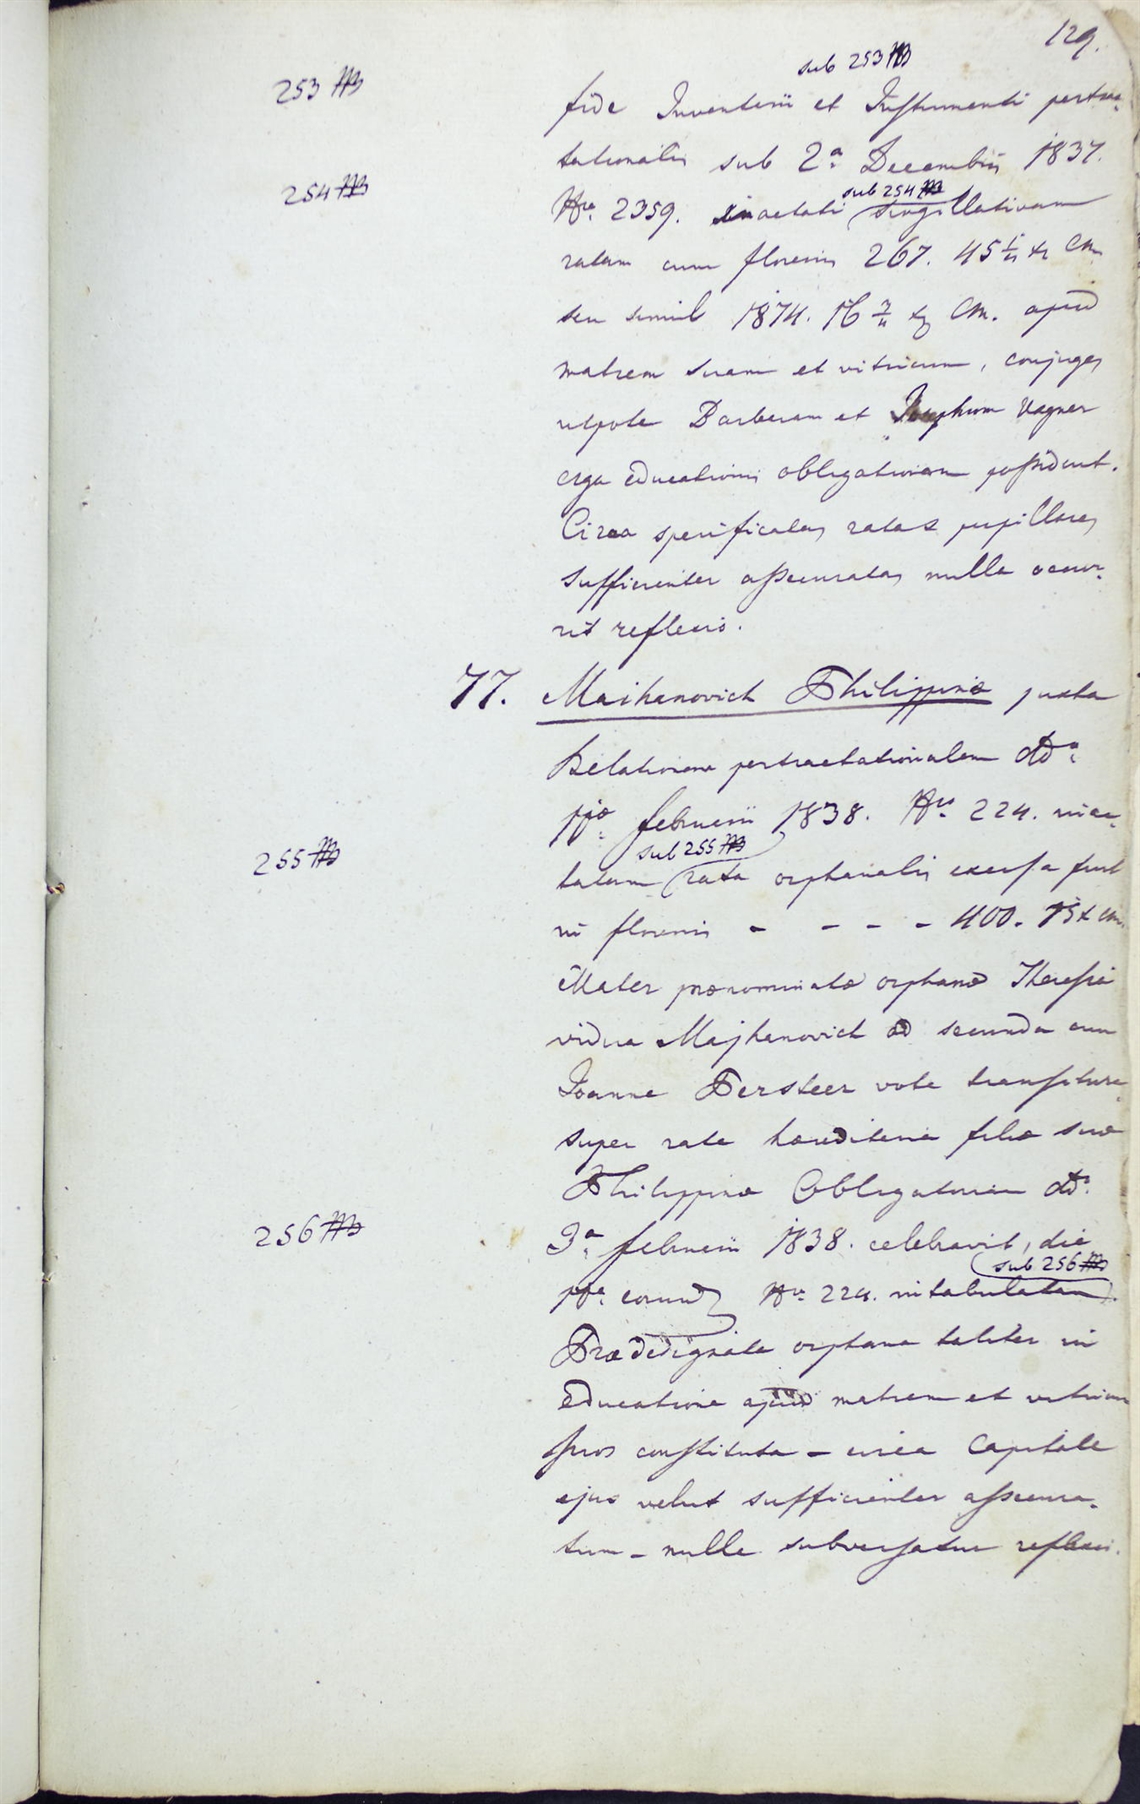 129.
sub 253
253
fide Inventarii et Instrumenti pertrac-
tationalis sub 2a Decembris 1837.
254
sub 254
Nro 2359. inactati singillativam
ratam cum florenis 267. 45 xr CM.
seu simul 1874. 16 xr CM. apud
matrem suam et vitricum, conjuges
utpote Barbaram et Josephum Vagner
erga educationis obligationem possident.
Circa specificatas ratas pupillares
sufficienter assecuratas nulla occur-
rit reflexio.
77. Maihanovich Philippinae juxta
Relationem pertractationalem dtd
Februarii 1838. Nro 224. inac-
sub 255
255
tatam rata orphanalis exersa fuit
in florenis - - - - 400. 15 x CM.
Mater praenominatae orphanae Theresia
vidua Majhanovich ad secunda cum
Joanne Fersteer vota transitura
super rata haereditaria filiae suae
Philippinae Obligatoriam dtd.
256
3a Februarii 1838. celebravit, die
sub 256
Nro 224. intabulatam.
Praedesignata orphana taliter in
educatione apud matrem et vitricum
suos constituta - circa Capitale
ejus velut sufficienter assecura-
tum - nulla subversatur reflexi.